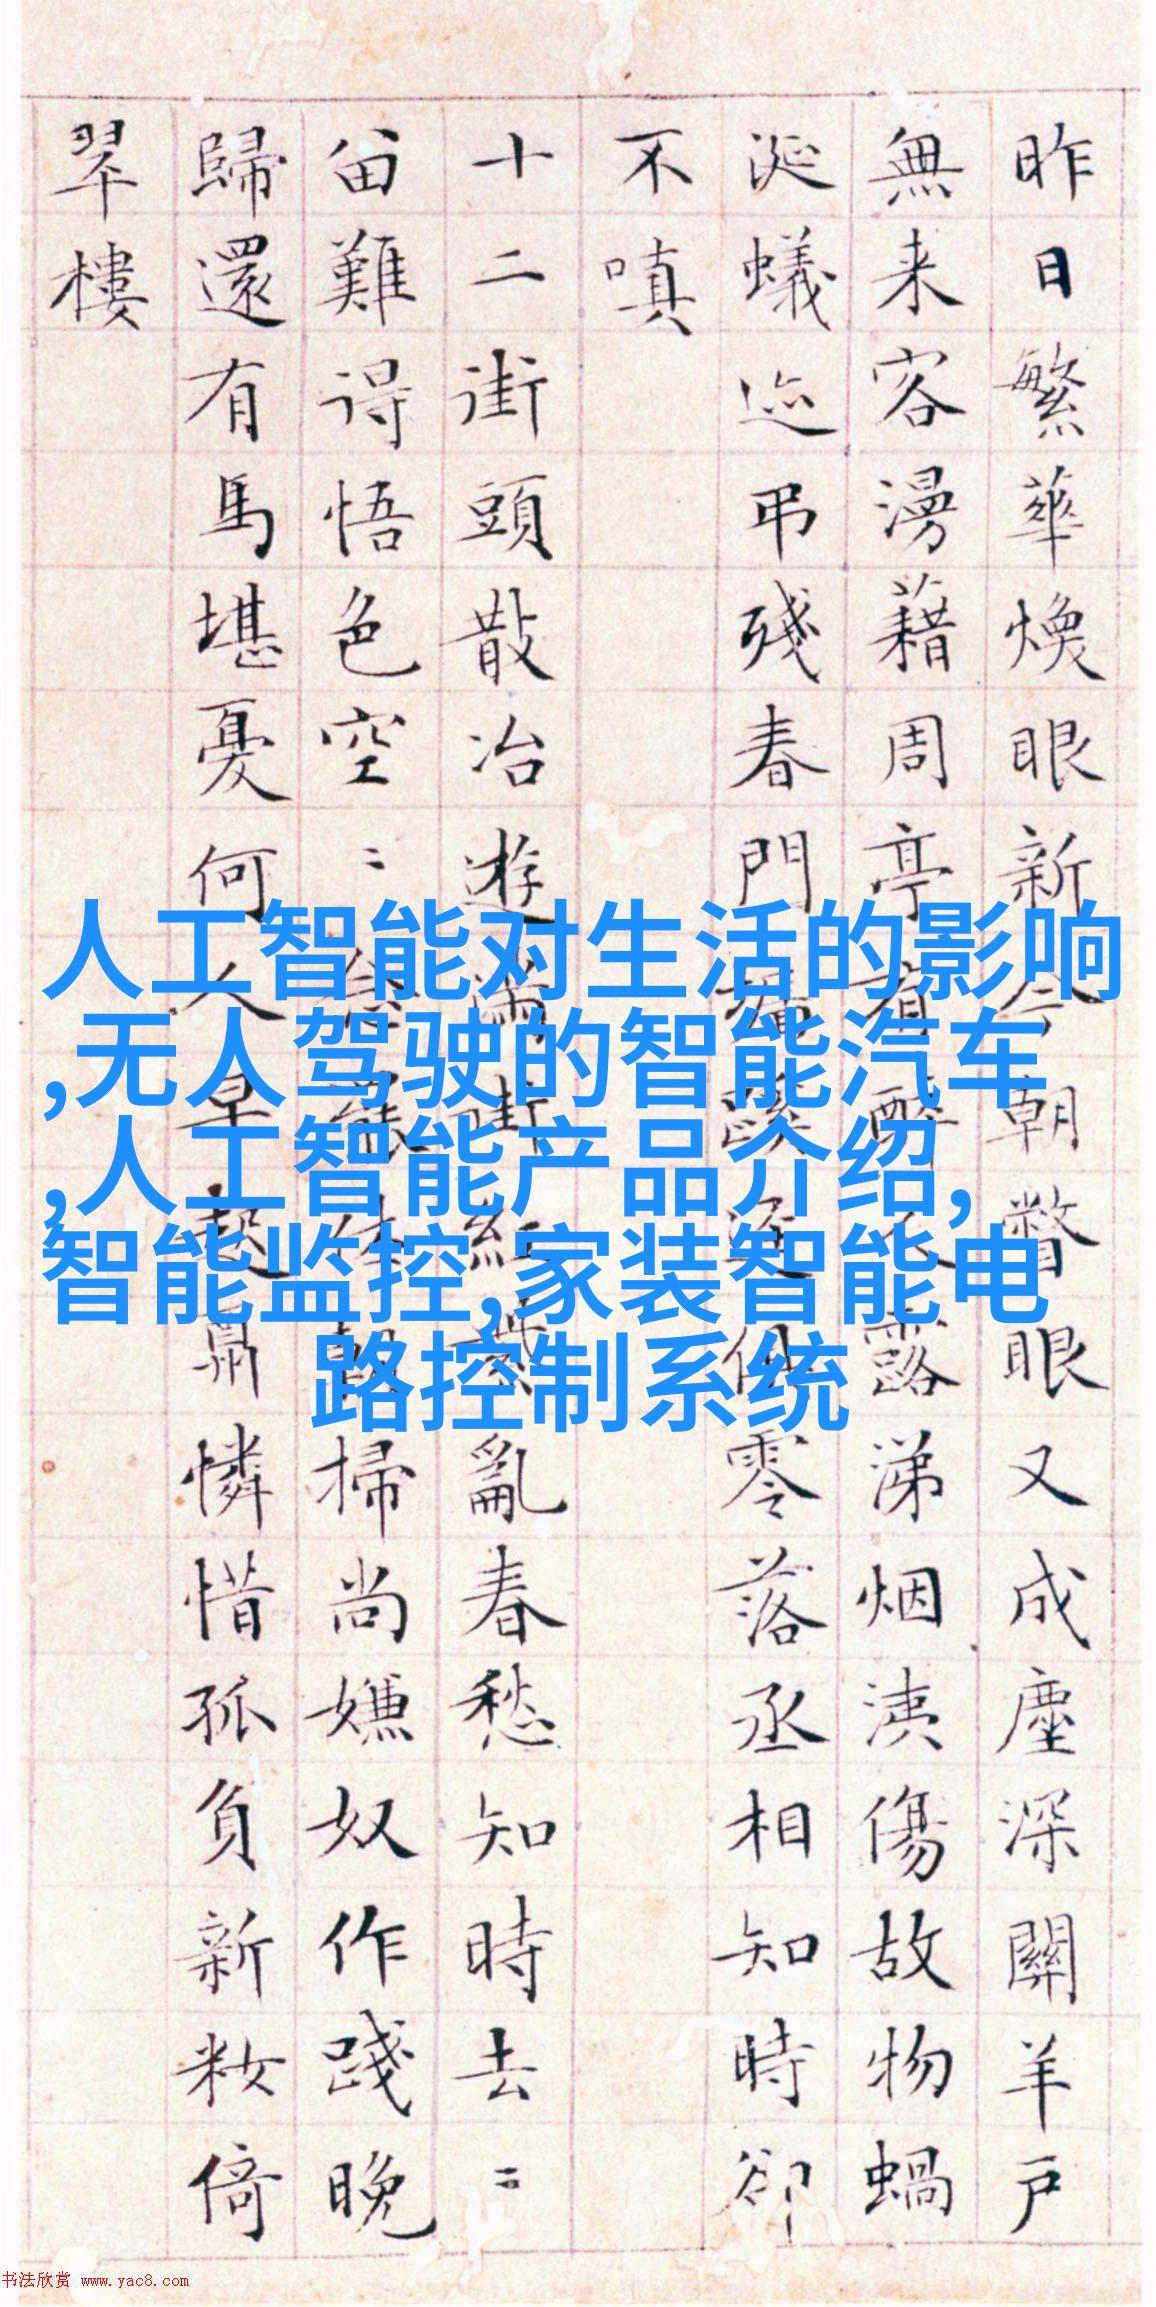 人工智能对生活的影响
,无人驾驶的智能汽车
,人工智能产品介绍,
智能监控,家装智能电
路控制系统
昨日繁華煥眼新今朝瞥眼又成塵深關羊戶
無来客漫藉周亭有醉露涕烟洟傷故物蝸
涎蟻迹弔殘春門蹊逕俱零落丞相知時卻
不嗔
十二街頭散冶遊滿街紅紫亂春愁知時去〻
畄難得悟色空〻掃尚嫌奴作踐晚
歸還有馬堪憂何人早起憐惜孤負新籹倚
翠樓
书法欣赏 www.yac8.com